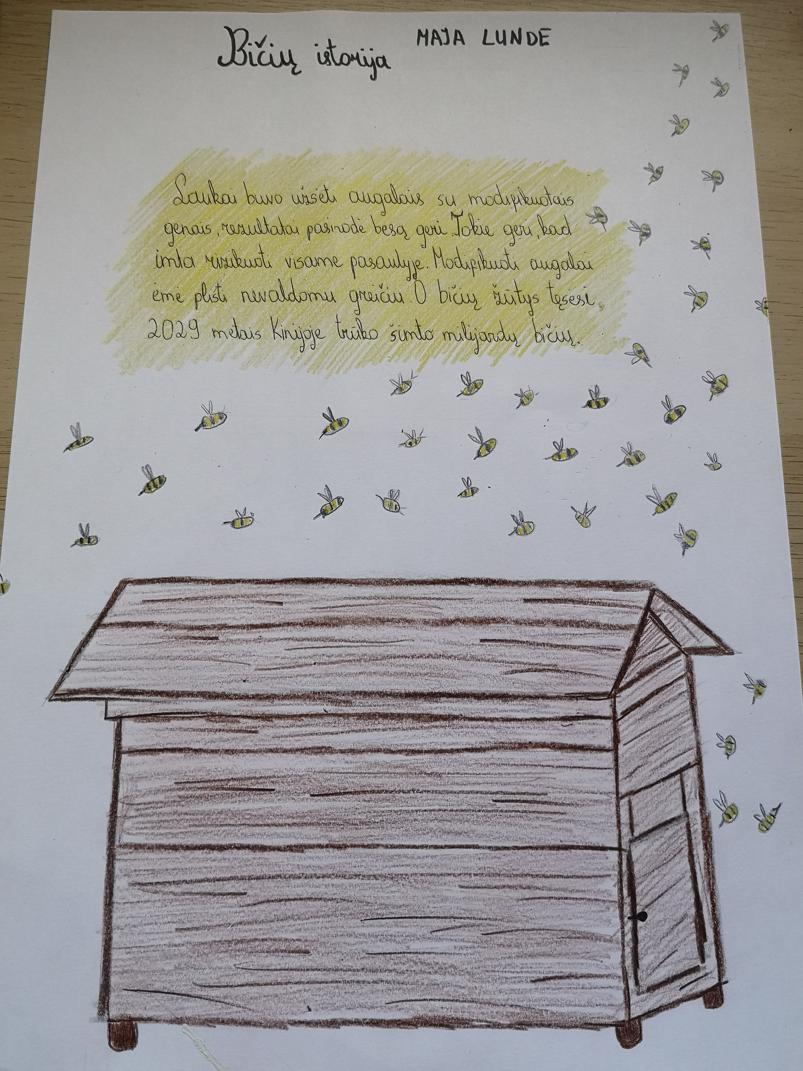 Bičių istorija
MAJA LUNDE
Laukai buvo užsėti augalais su modifikuotais
genais, rezultatai pasirodė besą geri. Tokie geri, kad
imta rizikuoti visame pasaulyje. Modifikuoti augalai
ėmė plisti nevaldomu greičiu. O bičių žūtys tęsėsi,
2029 metais Kinijoje trūko šimto milijardų bičių.